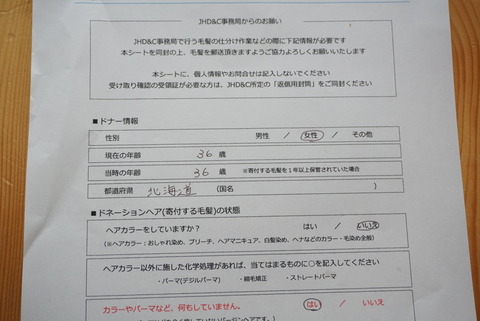 JHD&C事務局からのお願い
JHD&C事務局で行う毛髪の仕分け作業などの際に下記情報が必要です
本シートを同封の上、毛髪を郵送頂きますようご協力よろしくお願いいたします
本シートに、個人情報やお問合せは記入しないでください
受け取り確認の受領証が必要な方は、JHD&C所定の「返信用封筒」をご同封ください
■ドナー情報
性別 男性 / 女性 / その他
現在の年齢 36 歳
当時の年齢 36 歳 ※寄付する毛髪を1年以上保管されていた場合
都道府県 北海道 (国名 )
■ドネーションヘア(寄付する毛髪)の状態
ヘアカラーをしていますか? はい / いいえ
(※ヘアカラー：おしゃれ染め、ブリーチ、ヘアマニキュア、白髪染め、ヘナなどのカラー・毛染め全般)
ヘアカラー以外に施した化学処理があれば、当てはまるものに○を記入してください
・パーマ(デジルパーマ) ・縮毛矯正 ・ストレートパーマ
カラーやパーマなど、何もしていません。 はい / いいえ